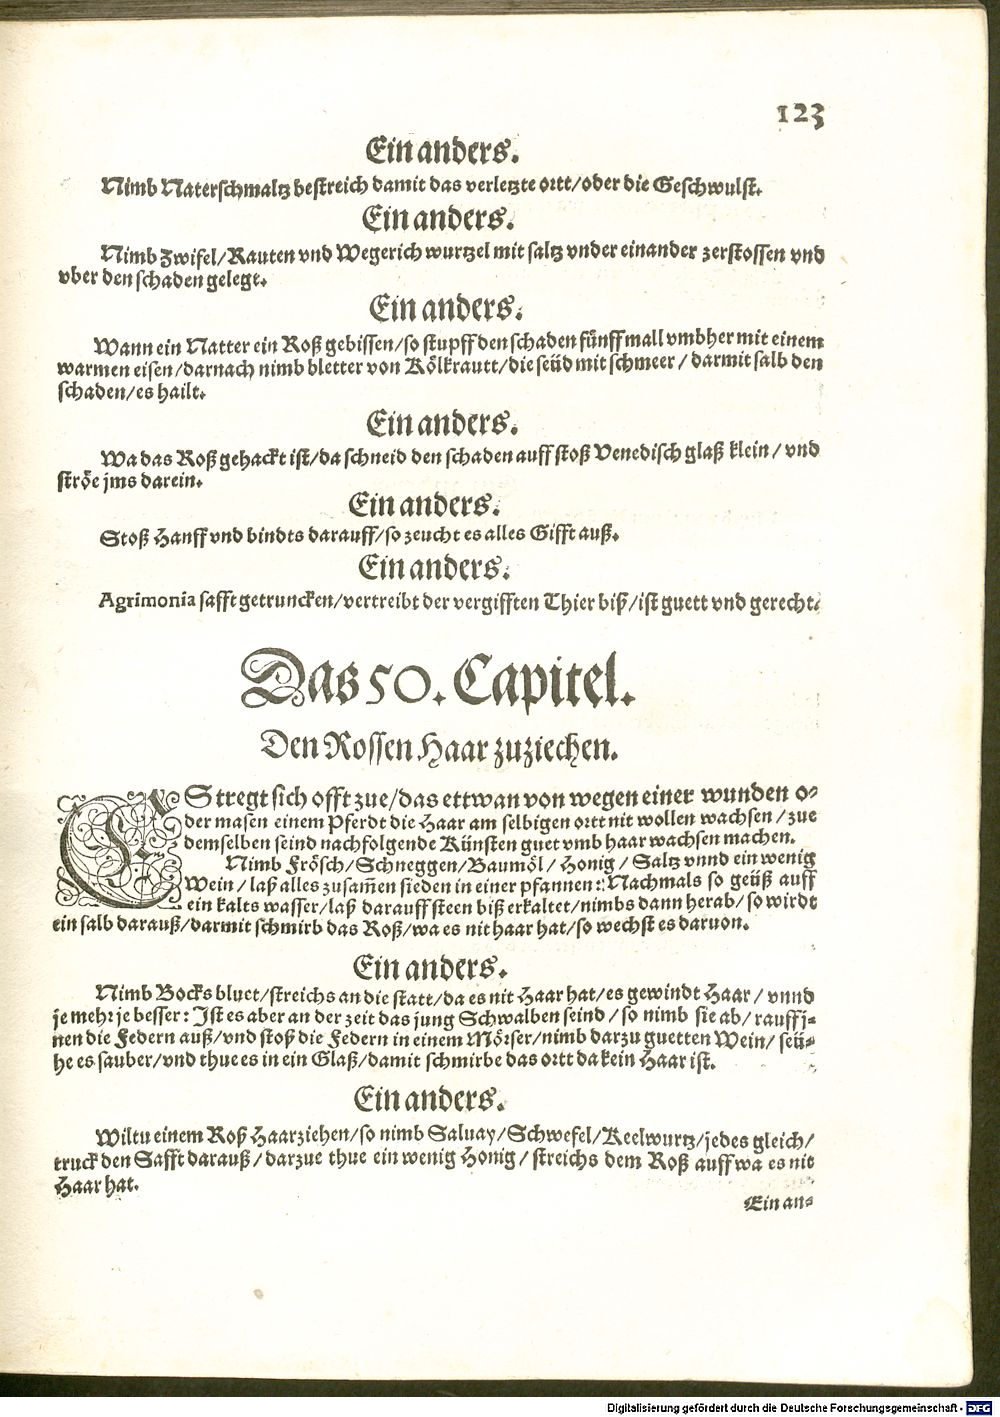 123
Ein anders.
Nimb Naterschmaltz bestreich damit das verletzte ortt/oder die Geschwulst.
Ein anders.
Nimb Zwifel/Rauten vnd Wegerich wurtzel mit saltz vnder einander zerstossen vnd
vber den schaden gelegt.
Ein anders.
Wann ein Natter ein Roß gebissen/so stupff den schaden fünff mall vmbher mit einem
warmen eisen/darnach nimb bletter von Kölkrautt/die seüd mit schmeer/darmit salb den
schaden/es hailt.
Ein anders.
Wa das Roß gehackt ist/da schneid den schaden auff stoß Venedisch glaß klein/vnd
ströe jms darein.
Ein anders.
Stoß Hanff vnd bindts darauff/so zeucht es alles Gifft auß.
Ein anders.
Agrimonia safft getruncken/vertreibt der vergifften Thier biß/ist guett vnd gerecht.
Das 50. Capitel.
Den Rossen Haar zuziechen.
ES tregt sich offt zue/das ettwan von wegen einer wunden o-
der masen einem Pferdt die Haar am selbigen ortt nit wollen wachsen/zue
demselben seind nachfolgende Künsten guet vmb haar wachsen machen.
Nimb Frösch/Schneggen/Baumöl/Honig/Saltz vnnd ein wenig
Wein/laß alles zusam̃en sieden in einer pfannen: Nachmals so geüß auff
ein kalts wasser/laß darauff steen biß erkaltet/nimbs dann herab/so wirdt
ein salb darauß/darmit schmirb das Roß/wa es nit haar hat/so wechst es daruon.
Ein anders.
Nimb Bocks bluet/streichs an die statt/da es nit Haar hat/es gewindt Haar/vnnd
je mehr je besser: Ist es aber an der zeit das jung Schwalben seind/so nimb sie ab/rauff j-
nen die Federn auß/vnd stoß die Federn in einem Mörser/nimb darzu guetten Wein/seü-
he es sauber/vnd thue es in ein Glaß/damit schmirbe das ortt da kein Haar ist.
Ein anders.
Wiltu einem Roß Haarziehen/so nimb Saluay/Schwefel/Keelwurtz/jedes gleich/
truck den Safft darauß/darzue thue ein wenig Honig/streichs dem Roß auff wa es nit
Haar hat.
Ein an-
Digitalisierung gefördert durch die Deutsche Forschungsgemeinschaft - DFG